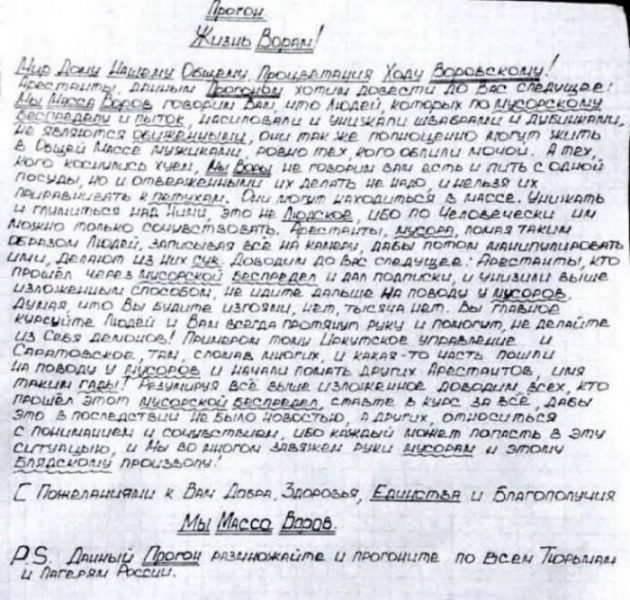 Прогон
Жизнь Ворам!
Мир Дому Нашему Общему, Процветания Ходу Воровскому!
Арестанты, данным Прогоном хотим довести до Вас следущее:
Мы Масса Воров говорим Вам, что Людей, которых по мусорскому
беспределу и пыток, насиловали и унижали швабрами и дубинками,
не являются обиженными, они так же полноценно могут жить
в Общей Массе мужиками, ровно тех, кого облили мочой. А тех,
кого коснулись хуем, Мы Воры не говорим вам есть и пить с одной
посуды, но и отверженными их делать не надо, и нельзя их
приравнивать к петухам. Они могут находиться в массе. Унижать
и глумиться над Ними, это не Людское, ибо по Человечески им
можно только сочувствовать. Арестанты, мусора, ломая таким
образом Людей, записывая всё на камеру, дабы потом манипулировать
ими, делают из них сук. Доводим до Вас следущее: Арестанты, кто
прошёл через мусорской беспредел и дал подписки, и унизили выше
изложенным способом, не идите дальше на поводу у мусоров,
думая что Вы будите изгоями, нет, тысяча нет. Вы главное
курсуйте Людей и Вам всегда протянут руку и помогут, не делайте
из Себя демонов! Примером тому Иркутское управление и
Саратовское, там, сломав многих, и какая-то часть пошли
на поводу у мусоров и начали ломать других Арестантов, имя
таким гады! Резумируя всё выше изложенное доводим всех, кто
прошёл этот мусорской беспредел, ставьте в курс за всё, дабы
это в последствии не было новостью, а других, относиться
с пониманием и сочувствием, ибо каждый может попасть в эту
ситуацыю, и Мы во многом завяжем руки мусорам и этому
блядскому произволу!
С Пожеланиями к Вам Добра, Здоровья, Единства и Благополучия
Мы Масса Воров.
P.S. Данный Прогон размножайте и прогоните по всем Тюрьмам
и Лагерям России.